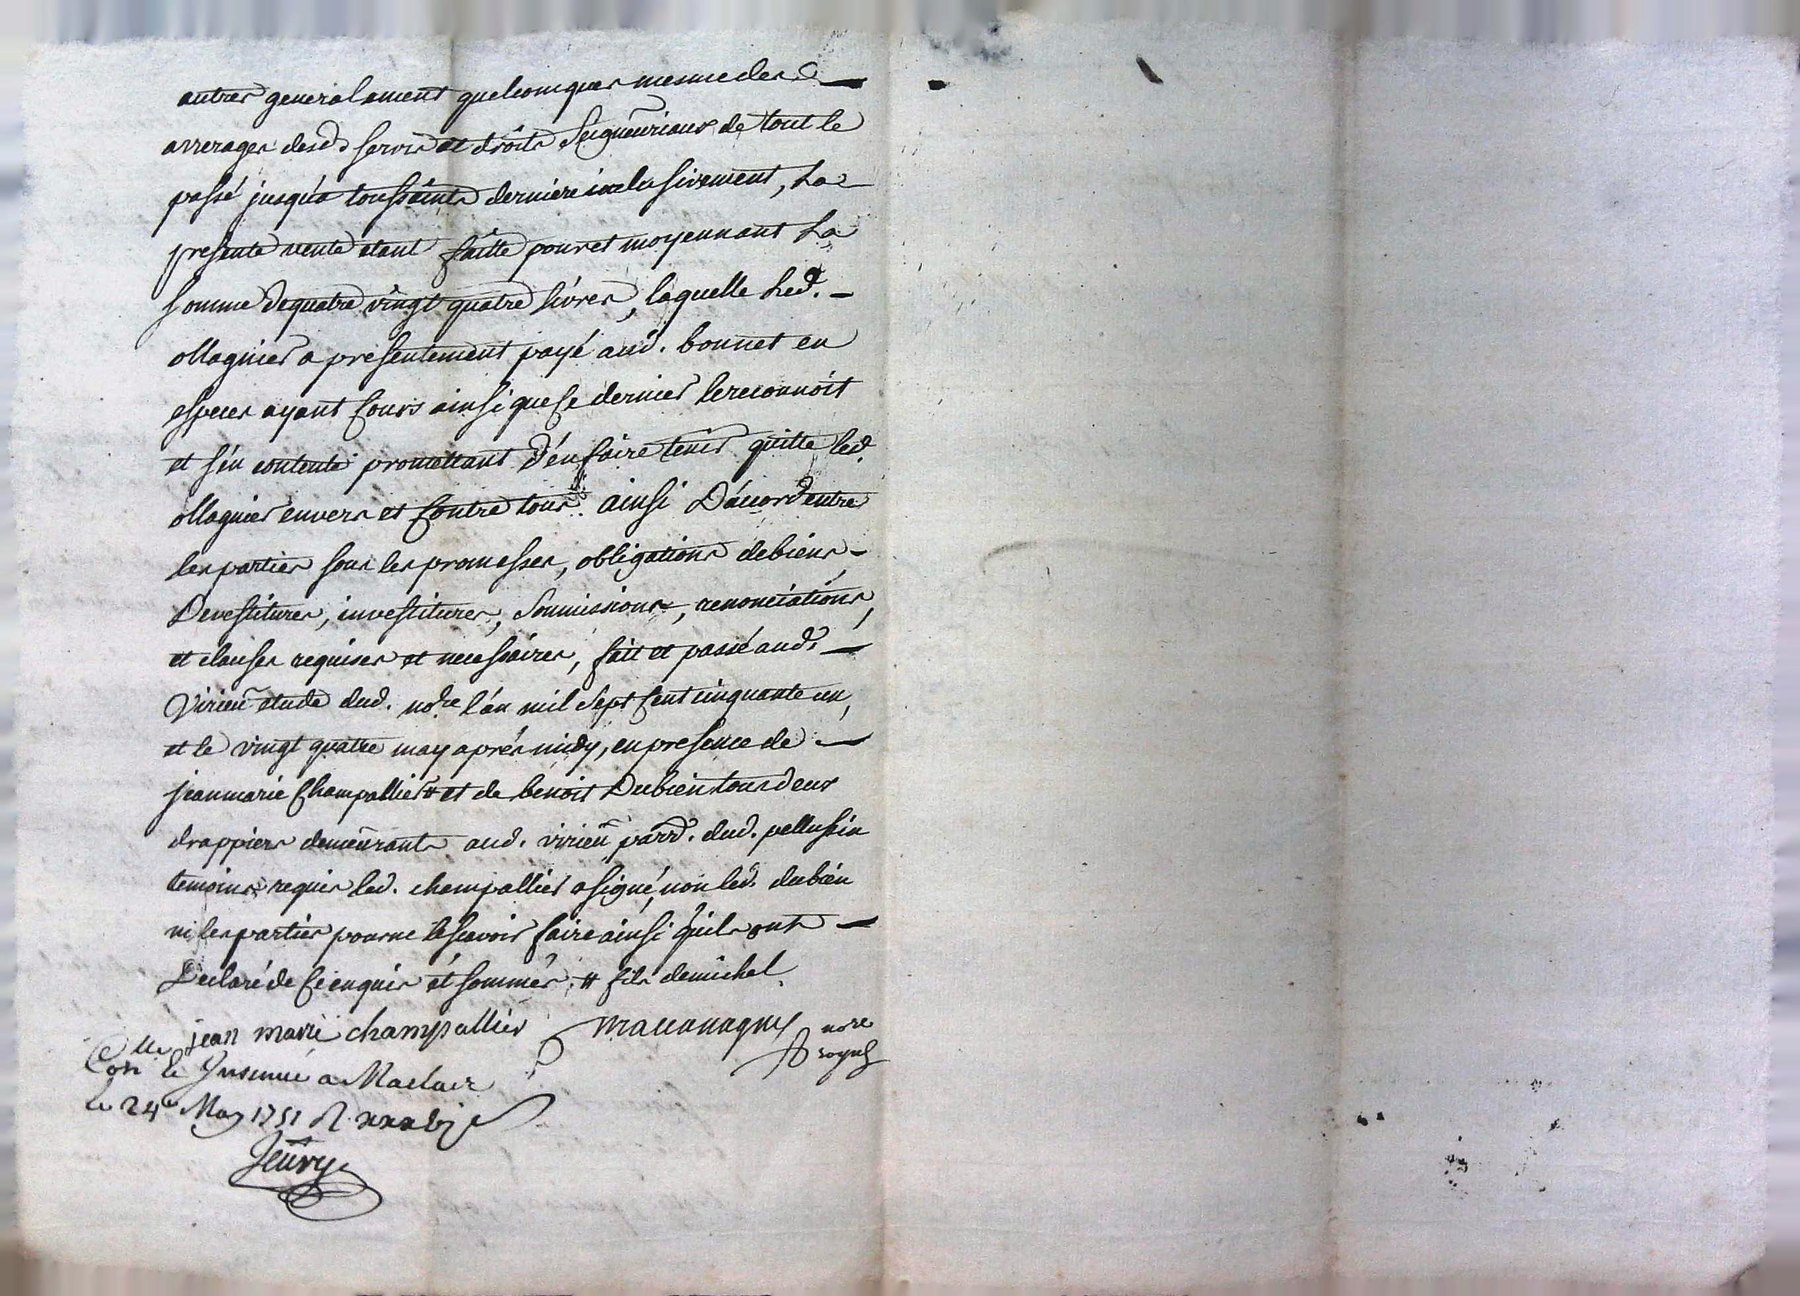 autres generalement quelconques mesme des
arrerages desd. servis et droits Seigneuriaux de tout le
passé jusqu'a toussaints derniere inclusivement, La
presente vente etant faitte pour et moyennant La
somme de quatre vingt quatre livres, laquelle Led.
ollagnier a presentement payé aud. bonnet en
especes ayant Cours ainsi que Ce dernier le reconnoit
et s'en contente promettant d'en faire tenir quitte led.
ollagnier envers et Contre tous. ainsi D'accord entre
les parties sous les promesses, obligations de biens,
Devestitures, investitures, Soumissions, renonciations,
et clauses requises et necessaires, fait et passé aud.
Virieu etude dud. nore l'an mil Sept Cent cinquante un,
et le vingt quatre may aprés midy, en presence de
jean marie Champallier # et de benoit Dubien tous deux
drappiers demeurants aud. virieu parr. dud. pellussin
temoins requis led. champallier a signé, non led. dubien
ni les parties pour ne le sçavoir faire ainsi qu'ils ont
Declaré de Ce enquis et sommés. # fils de michel.
jean marie champallier nore
royal
Con.lle & Insinué a Maclas
Le 24e May 1751 R.
Jeury